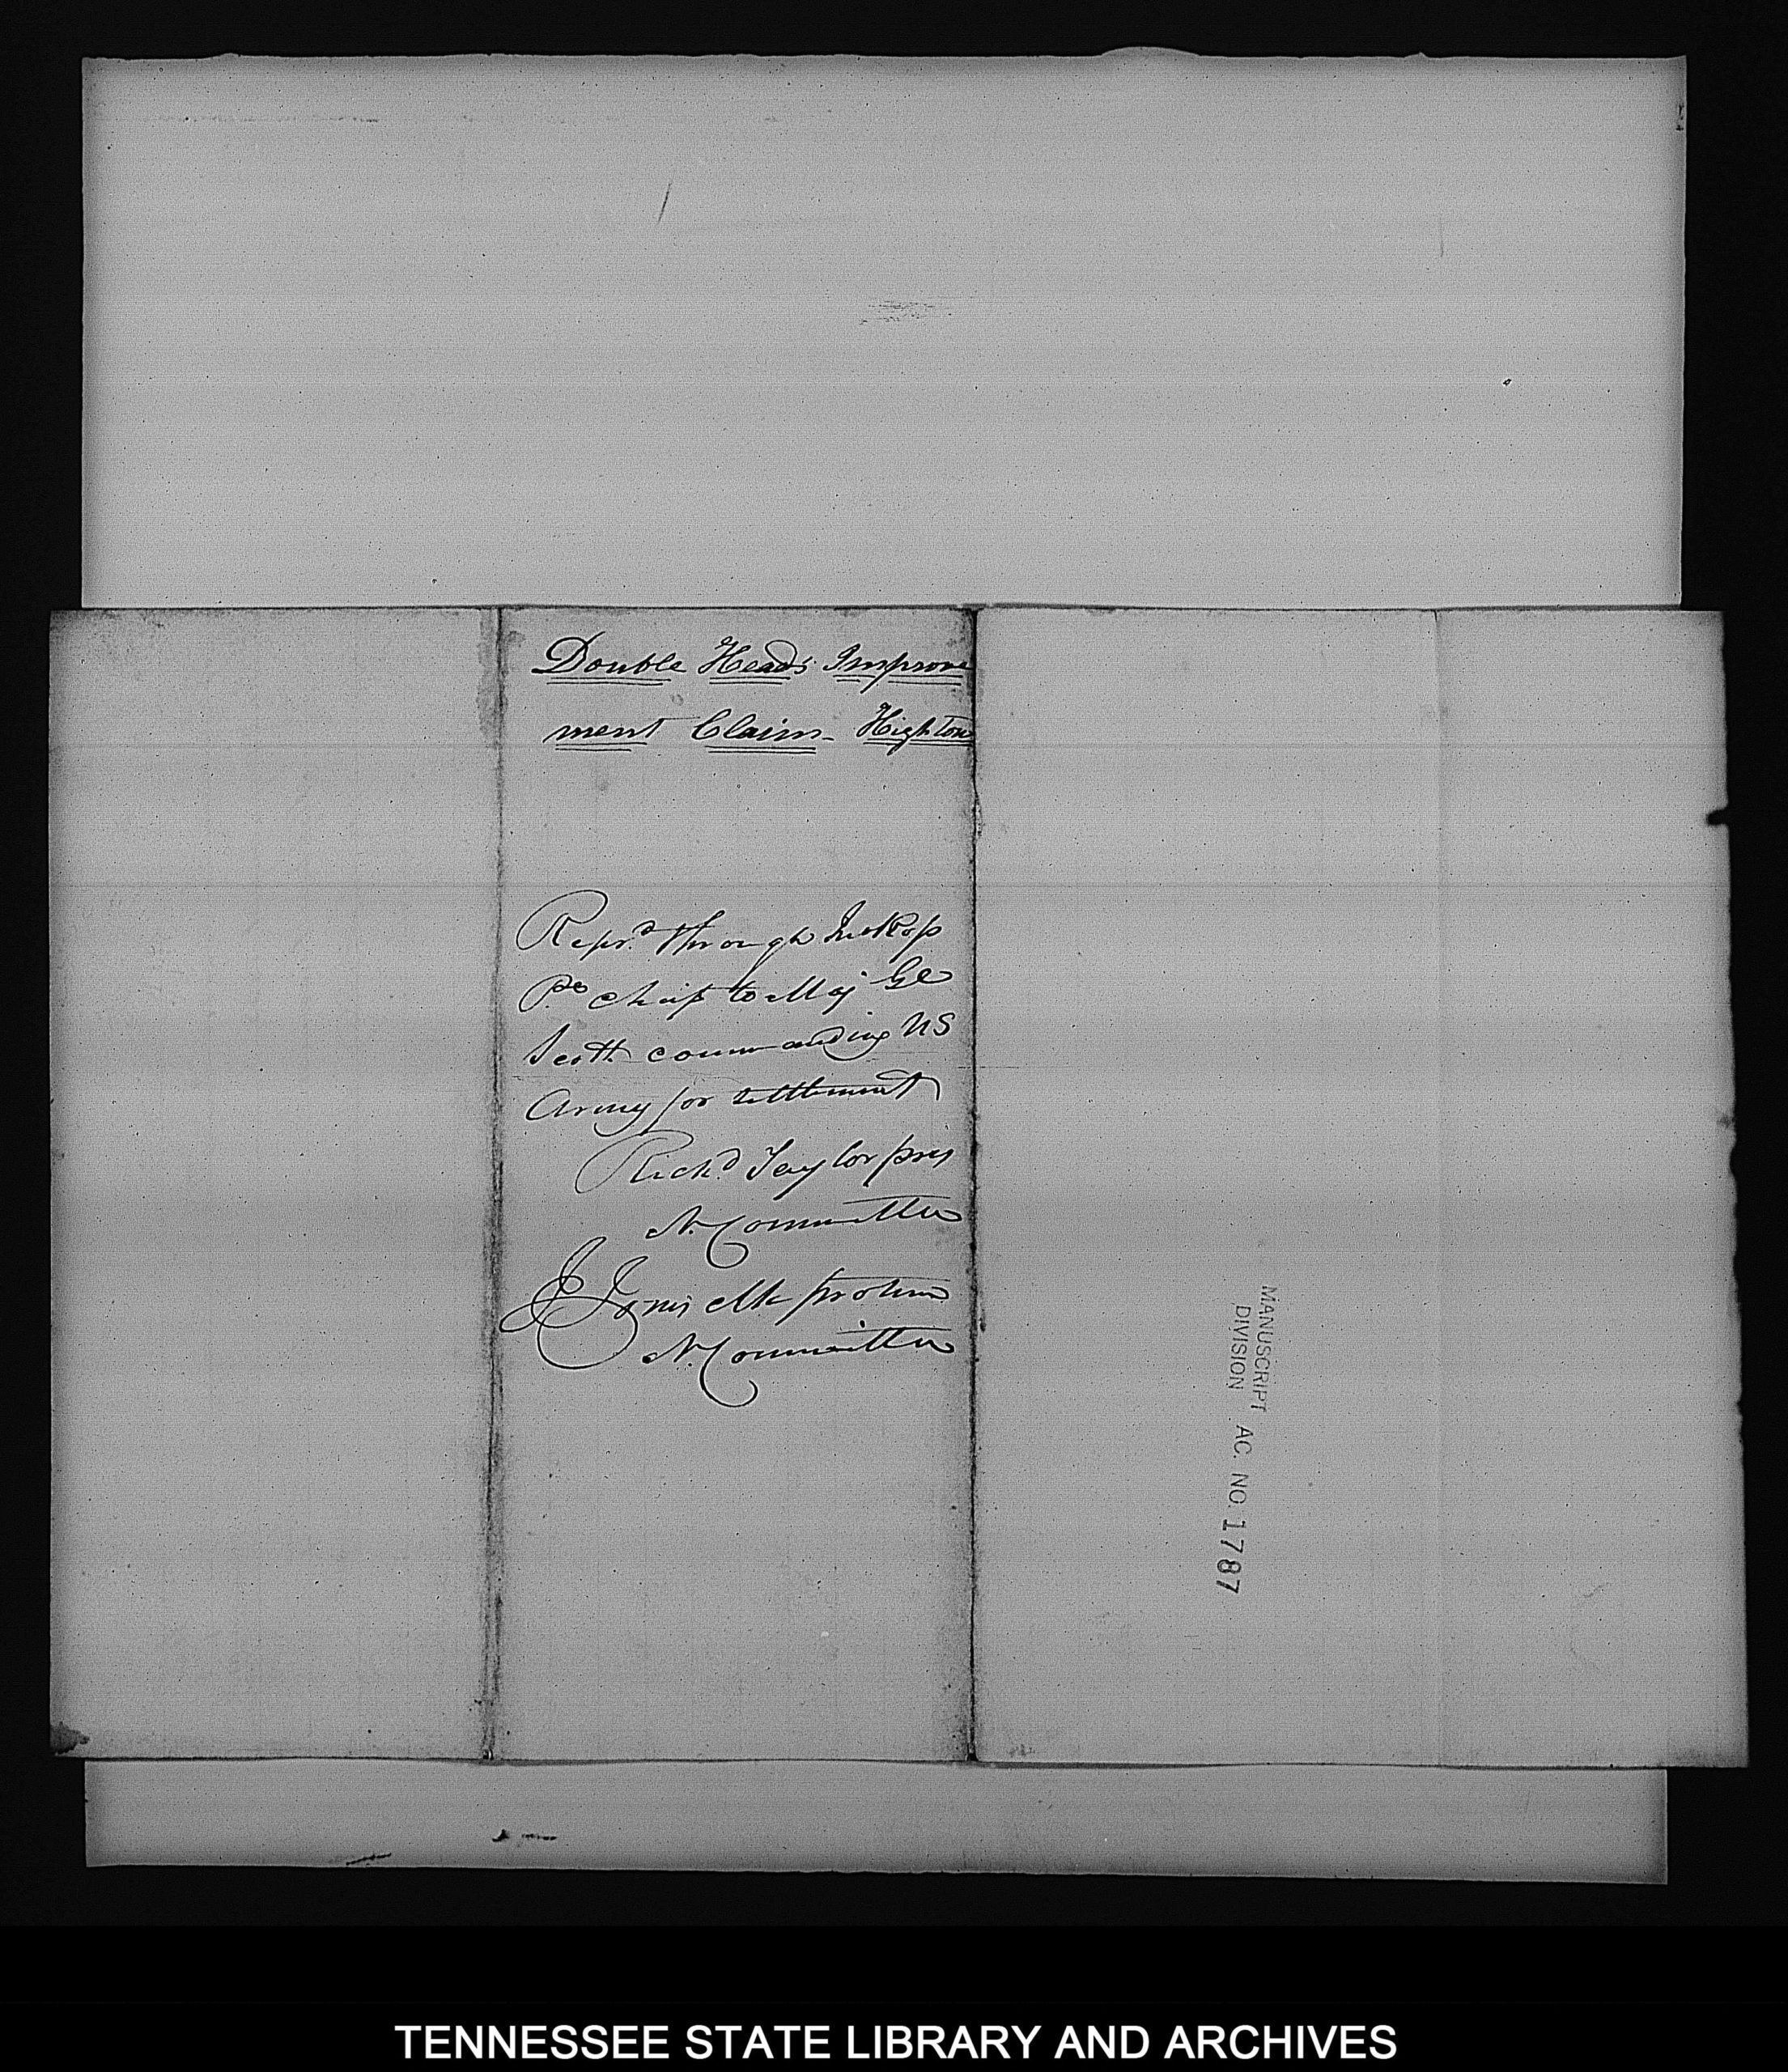 Double Head's Improve
ment Claim - Hightow
Refer.d through Jno Ross
Pr. chief to Maj Gl
Scott commanding US
Army for settlement
Rich.d Taylor pres
N. Committee
J Jones clk protem
N. Committee
MANUSCRIPT
DIVISION AC. NO. 1787
TENNESSEE STATE LIBRARY AND ARCHIVES